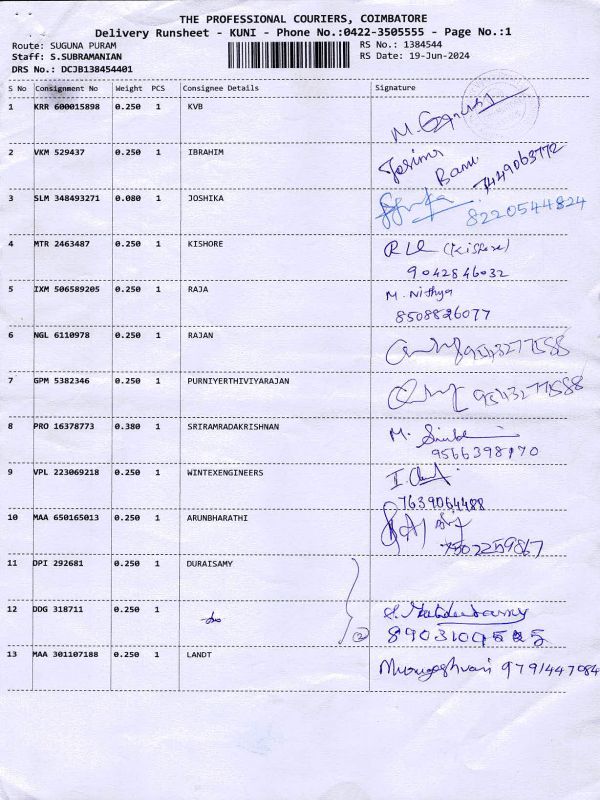 THE PROFESSIONAL COURIERS, COIMBATORE
Delivery Runsheet - KUNI - Phone No.:0422-3505555 - Page No.:1
Route: SUGUNA PURAM RS No.: 1384544
Staff: S.SUBRAMANIAN RS Date: 19-Jun-2024
DRS No.: DCJB138454401
S No Consignment No Weight PCS Consignee Details Signature
1 KRR 600015898 0.250 1 KVB
M.
2 VKM 529437 0.250 1 IBRAHIM
Banu 7449063772
3 SLM 348493271 0.080 1 JOSHIKA
8220544824
4 MTR 2463487 0.250 1 KISHORE
(Kishore)
9042846032
5 IXM 506589205 0.250 1 RAJA M. Nithya
8508826077
6 NGL 6110978 0.250 1 RAJAN
9543277588
7 GPM 5382346 0.250 1 PURNIYERTHIVIYARAJAN
9543277588
8 PRO 16378773 0.380 1 SRIRAMRADAKRISHNAN M.
9566398170
9 VPL 223069218 0.250 1 WINTEXENGINEERS I.
7639064488
10 MAA 650165013 0.250 1 ARUNBHARATHI
7502259867
11 DPI 292681 0.250 1 DURAISAMY
12 DDG 318711 0.250 1 -do-
2
13 MAA 301107188 0.250 1 LANDT Murugeshwari 9791447084